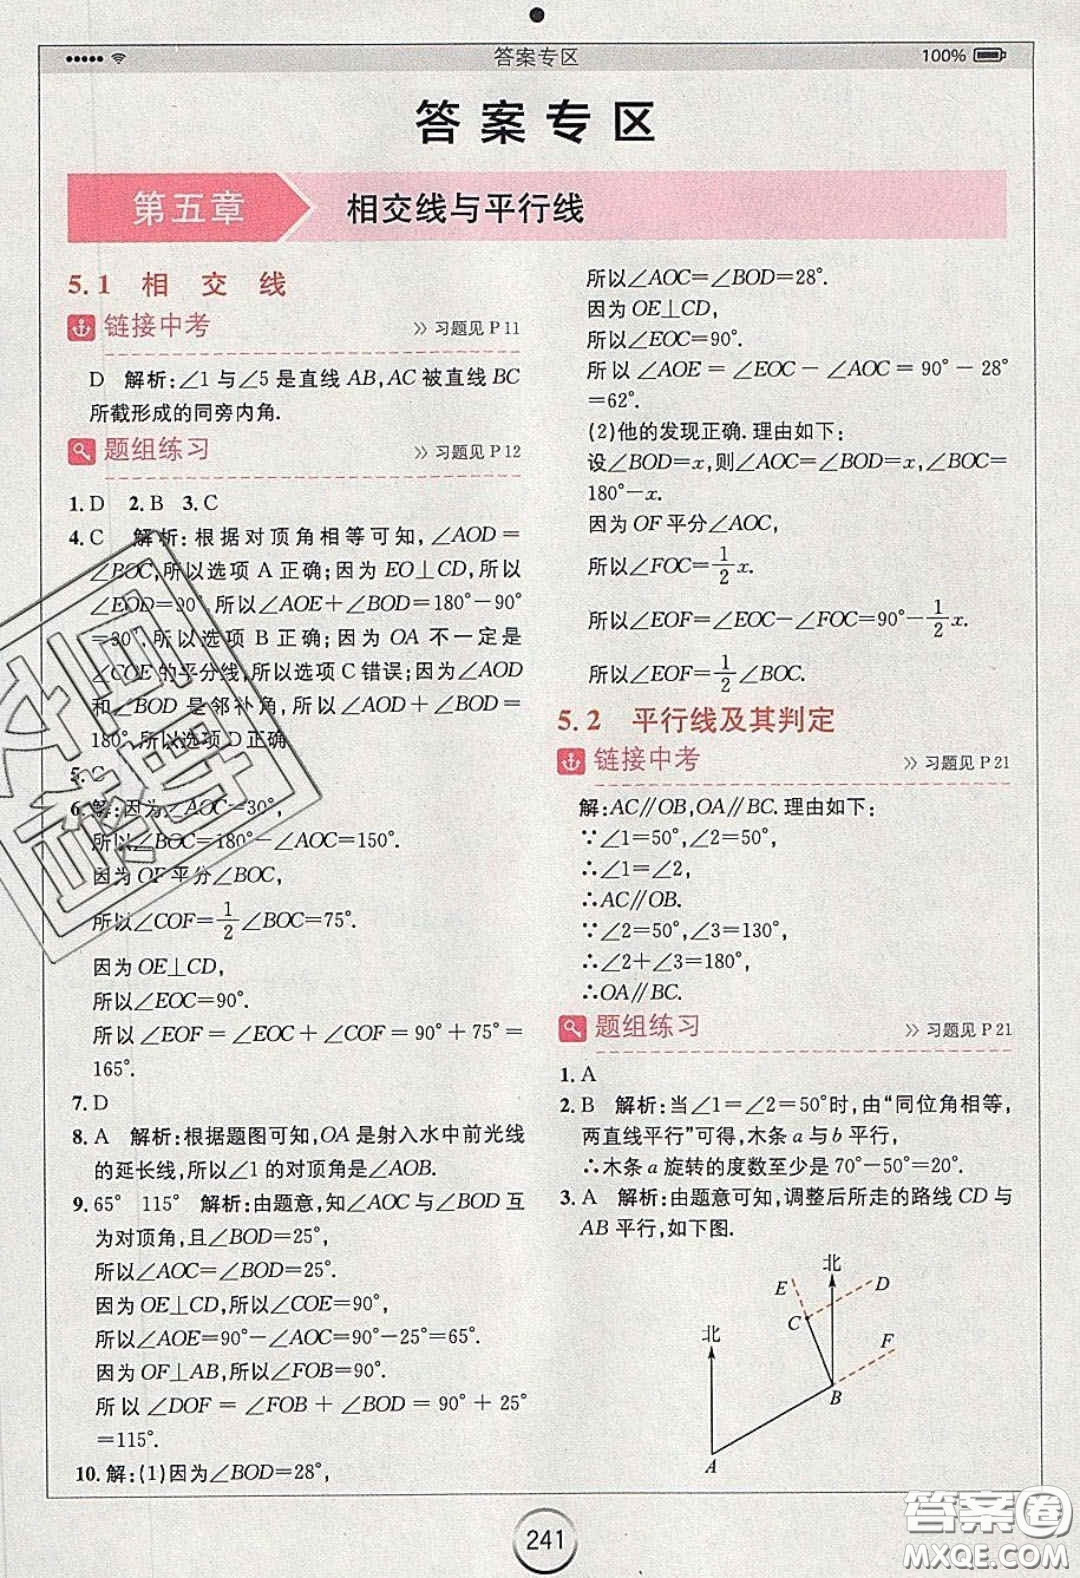 答案专区
100%
答案专区
第五章 相交线与平行线
5.1 相 交 线
链接中考 》习题见 P 11
D 解析:∠1 与∠5 是直线 AB,AC 被直线 BC
所截形成的同旁内角.
题组练习 》习题见 P 12
1. D 2. B 3. C
4. C 解析:根据对顶角相等可知,∠AOD=
∠BOC,所以选项 A 正确;因为 EO⊥CD,所以
∠EOD=90°,所以∠AOE+∠BOD=180°-90°
=30°,所以选项 B 正确;因为 OA 不一定是
∠COE 的平分线,所以选项 C 错误;因为∠AOD
和∠BOD 是邻补角,所以∠AOD+∠BOD=
180°,所以选项 D 正确
5. C
6. 解:因为∠AOC=30°,
所以∠BOC=180°-∠AOC=150°.
因为 OF 平分∠BOC,
所以∠COF=1/2∠BOC=75°.
因为 OE⊥CD,
所以∠EOC=90°.
所以∠EOF=∠EOC+∠COF=90°+75°=
165°.
7. D
8. A 解析:根据题图可知,OA 是射入水中前光线
的延长线,所以∠1 的对顶角是∠AOB.
9. 65° 115° 解析:由题意,知∠AOC 与∠BOD 互
为对顶角,且∠BOD=25°,
所以∠AOC=∠BOD=25°.
因为 OE⊥CD,所以∠COE=90°,
所以∠AOE=90°-∠AOC=90°-25°=65°.
因为 OF⊥AB,所以∠FOB=90°.
所以∠DOF=∠FOB+∠BOD=90°+25°
=115°.
10. 解:(1)因为∠BOD=28°,
所以∠AOC=∠BOD=28°.
因为 OE⊥CD,
所以∠EOC=90°.
所以∠AOE=∠EOC-∠AOC=90°-28°
=62°.
(2)他的发现正确.理由如下:
设∠BOD=x,则∠AOC=∠BOD=x,∠BOC=
180°-x.
因为 OF 平分∠AOC,
所以∠FOC=1/2x.
所以∠EOF=∠EOC-∠FOC=90°-1/2x.
所以∠EOF=1/2∠BOC.
5.2 平行线及其判定
链接中考 》习题见 P 21
解:AC∥OB,OA∥BC.理由如下:
∵∠1=50°,∠2=50°,
∴∠1=∠2.
∴AC∥OB.
∵∠2=50°,∠3=130°,
∴∠2+∠3=180°,
∴OA∥BC.
题组练习 》习题见 P 21
1. A
2. B 解析:当∠1=∠2=50°时,由“同位角相等,
两直线平行”可得,木条 a 与 b 平行,
∴木条 a 旋转的度数至少是 70°-50°=20°.
3. A 解析:由题意可知,调整后所走的路线 CD 与
AB 平行,如下图.
北
E
D
C
北
F
B
A
241
答案圈
MXQE.COM